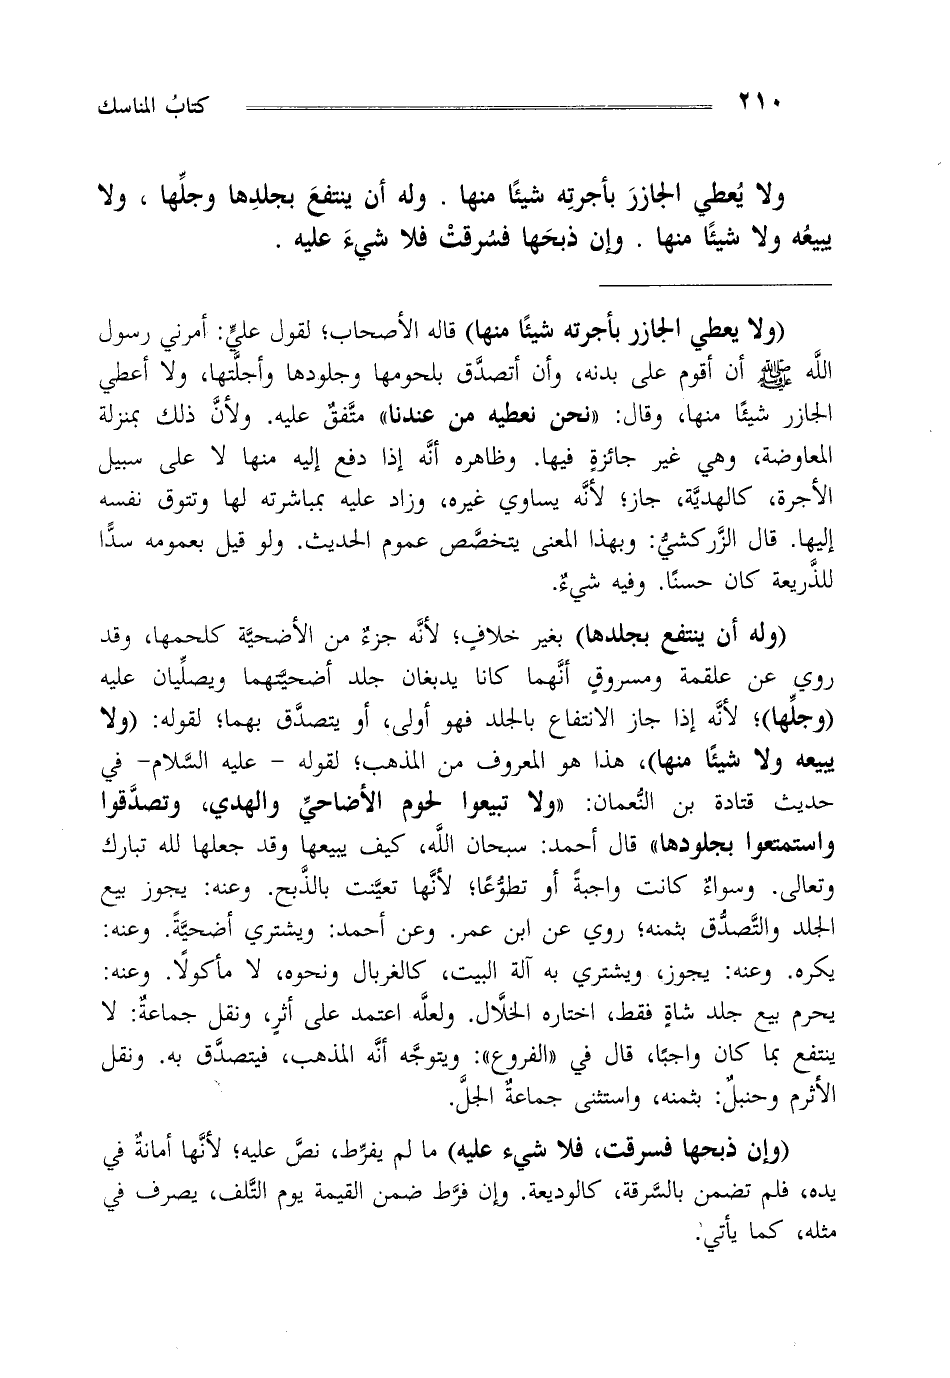 ٢١٠ كتابُ المناسك
ولا يُعطي الجازرَ بأجرتِه شيئًا منها . وله أن ينتفعَ بجلدِها وجلِّها ، ولا
يبيعُه ولا شيئًا منها . وإن ذبحَها فسُرقتْ فلا شيءَ عليه .
(ولا يعطي الجازر بأجرته شيئًا منها) قاله الأصحاب؛ لقول عليٍّ: أمرني رسول
اللَّه ﷺ أن أقوم على بدنه، وأن أتصدَّق بلحومها وجلودها وأجلَّتها، ولا أعطي
الجازر شيئًا منها، وقال: «نحن نعطيه من عندنا» متَّفقٌ عليه. ولأنَّ ذلك بمنزلة
المعاوضة، وهي غير جائزةٍ فيها. وظاهره أنَّه إذا دفع إليه منها لا على سبيل
الأجرة، كالهديَّة، جاز؛ لأنَّه يساوي غيره، وزاد عليه بمباشرته لها وتتوق نفسه
إليها. قال الزَّركشيُّ: وبهذا المعنى يتخصَّص عموم الحديث. ولو قيل بعمومه سدًّا
للذَّريعة كان حسنًا. وفيه شيءٌ.
(وله أن ينتفع بجلدها) بغير خلافٍ؛ لأنَّه جزءٌ من الأضحيَّة كلحمها، وقد
روي عن علقمة ومسروقٍ أنَّهما كانا يدبغان جلد أضحيَّتهما ويصلِّيان عليه
(وجلِّها)؛ لأنَّه إذا جاز الانتفاع بالجلد فهو أولى، أو يتصدَّق بهما؛ لقوله: (ولا
يبيعه ولا شيئًا منها)، هذا هو المعروف من المذهب؛ لقوله - عليه السَّلام- في
حديث قتادة بن النُّعمان: «ولا تبيعوا لحوم الأضاحيِّ والهدي، وتصدَّقوا
واستمتعوا بجلودها» قال أحمد: سبحان اللَّه، كيف يبيعها وقد جعلها لله تبارك
وتعالى. وسواءٌ كانت واجبةً أو تطوُّعًا؛ لأنَّها تعيَّنت بالذَّبح. وعنه: يجوز بيع
الجلد والتَّصدُّق بثمنه؛ روي عن ابن عمر. وعن أحمد: ويشتري أضحيَّةً. وعنه:
يكره. وعنه: يجوز، ويشتري به آلة البيت، كالغربال ونحوه، لا مأكولًا. وعنه:
يحرم بيع جلد شاةٍ فقط، اختاره الخلَّال. ولعلَّه اعتمد على أثرٍ، ونقل جماعةٌ: لا
ينتفع بما كان واجبًا، قال في «الفروع»: ويتوجَّه أنَّه المذهب، فيتصدَّق به. ونقل
الأثرم وحنبلٌ: بثمنه، واستثنى جماعةٌ الجلَّ.
(وإن ذبحها فسرقت، فلا شيء عليه) ما لم يفرِّط، نصَّ عليه؛ لأنَّها أمانةٌ في
يده، فلم تضمن بالسَّرقة، كالوديعة. وإن فرَّط ضمن القيمة يوم التَّلف، يصرف في
مثله، كما يأتي.